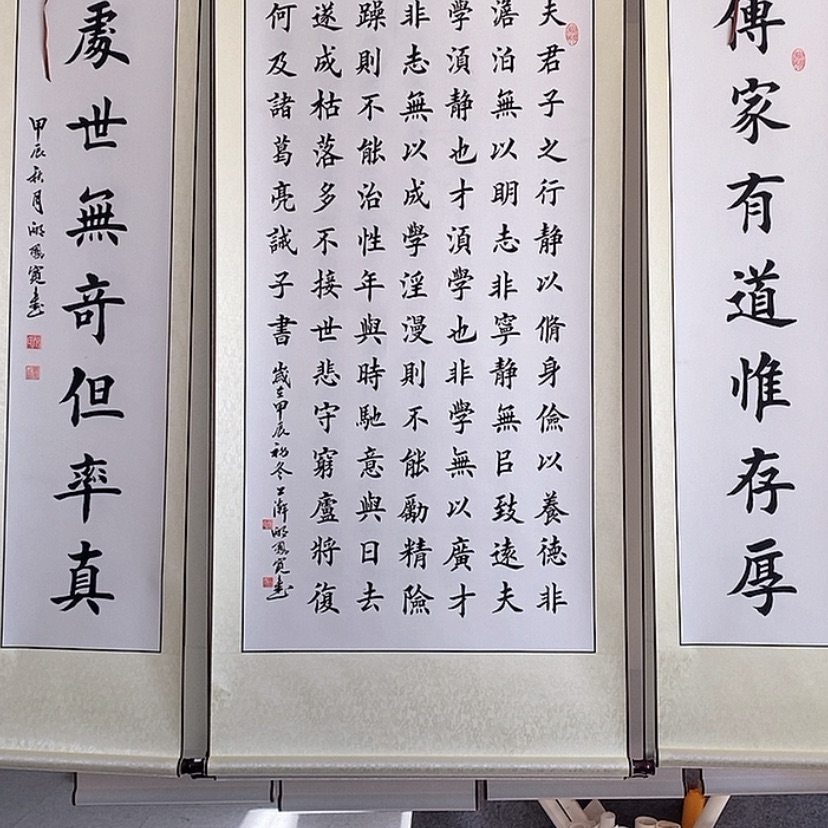 傳家有道惟存厚
夫君子之行静以脩身儉以養德非
澹泊無以明志非寧静無㠯致遠夫
學湏静也才湏學也非學無以廣才
非志無以成學淫漫則不能勵精險
躁則不能治性年與時馳意與日去
遂成枯落多不接世悲守窮廬將復
何及諸葛亮誡子書
歲在甲辰初冬上澣鳳寬書
處世無奇但率真
甲辰秋月鳳寬書